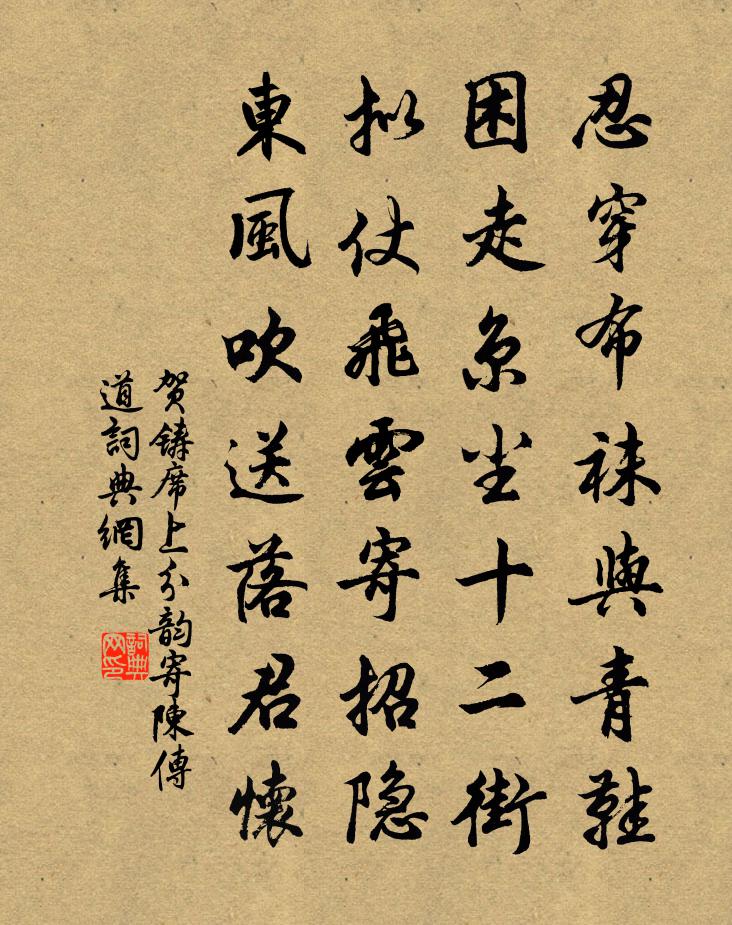 忍穿布袜與青鞋
困走京尘十二街
拟仗飛雲寄招隐
東風吹送落君懷
贺鑄席上分韵寄陳傳
道詞典網集
詞典网印